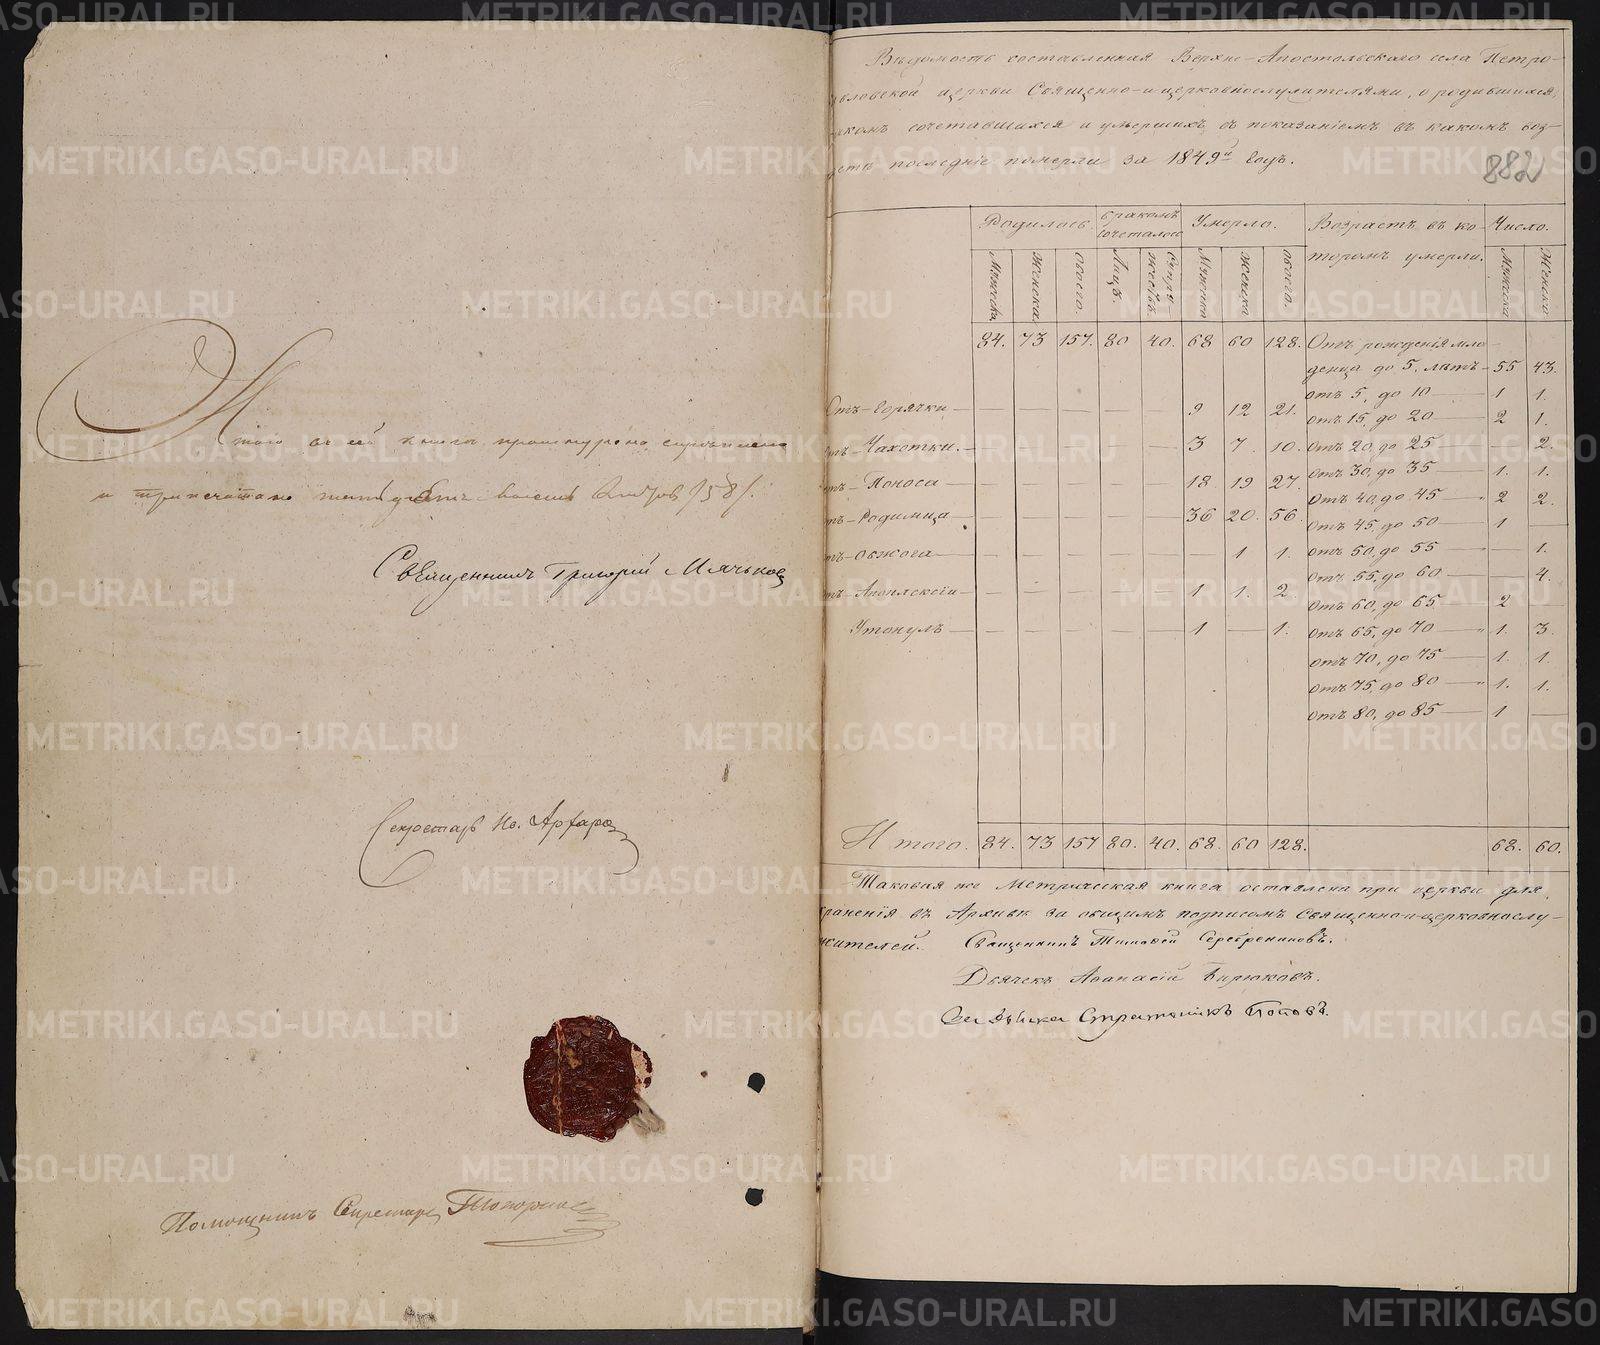 Итого въ сей книгѣ прошнуровано скрѣплено
и припечатано пятьдесятъ восемь листовъ /58/.
Священникъ Григорий Мячьков
Секретарь Ив.
Помощникъ Секретаря Топорков
Вѣдомость составленная Верхне-Апостольскаго села Петро-
вловской церкви Священно-и-церковнослужителями, о родившихся,
комъ сочетавшихся и умершихъ съ показаніемъ въ какомъ воз-
стѣ последніе померли за 1849й Годъ.
882
Родилось. бракомъ сочеталось Умерло. Возрастъ въ ко- Число.
Мужеска. Женска. обоего. Лицъ. супружествъ Мужеска женска обоего. торомъ умерли. Мужеска Женска
84. 73 157. 80 40. 68 60 128. Отъ рожденія мла-
денца до 5, лѣтъ 55 43.
отъ 5, до 10 1 1.
Отъ Горячки 9 12 21. отъ 15, до 20 2 1.
Отъ Чахотки. 3 7. 10. Отъ 20, до 25 — 2.
отъ 30, до 35 1. 1.
отъ Поноса 18 19 27. отъ 40, до 45 2 2.
отъ Родимца 36 20. 56. Отъ 45, до 50 1
отъ обжога — 1 1. отъ 50, до 55 — 1.
отъ 55, до 60 — 4.
отъ Апоплексіи 1 1. 2. отъ 60, до 65 2
Утонулъ 1 — 1. отъ 65, до 70 1. 3.
отъ 70, до 75 1. 1.
отъ 75, до 80 1. 1.
отъ 80, до 85 1 —
Итого. 84. 73 157 80. 40. 68. 60 128. 68. 60.
Таковая же Метрическая книга оставлена при церкви для
храненія въ Архивѣ за общимъ подписомъ Священно-и-церковнослу-
жителей. Священникъ Тимофей Серебренниковъ.
Дьячекъ Афанасій Бирюковъ.
За дьячка Стратоникъ Поповъ.
METRIKI.GASO-URAL.RU